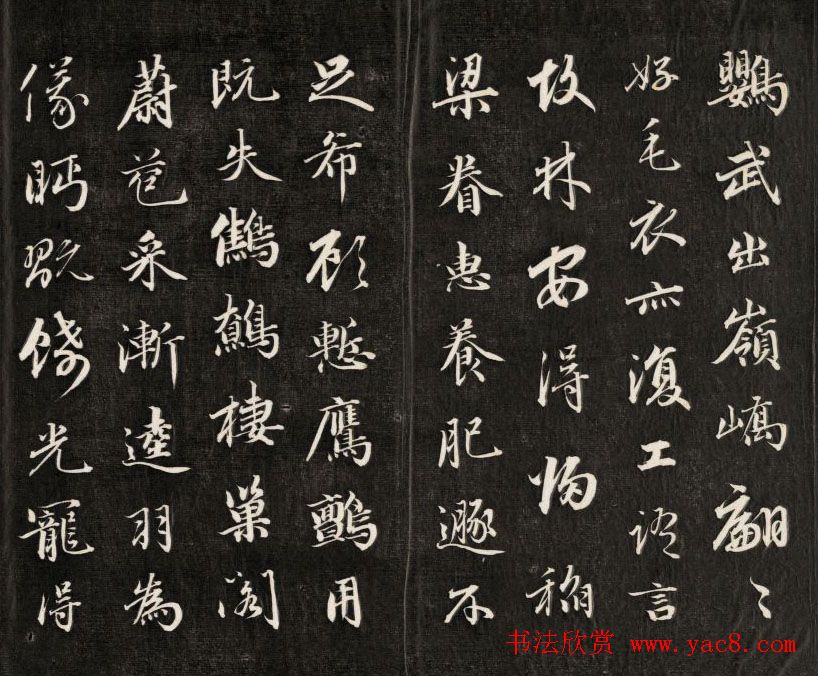 鸚武出嶺嶠翩〻
好毛衣亦復工語言
故林安得歸稻
梁眷惠養肥遯不
足希顧慙鷹鸇用
既失鷦鷯棲巢閣
蔚苞采漸逵羽為
儀眄翫饒光寵得
书法欣赏 www.yac8.com